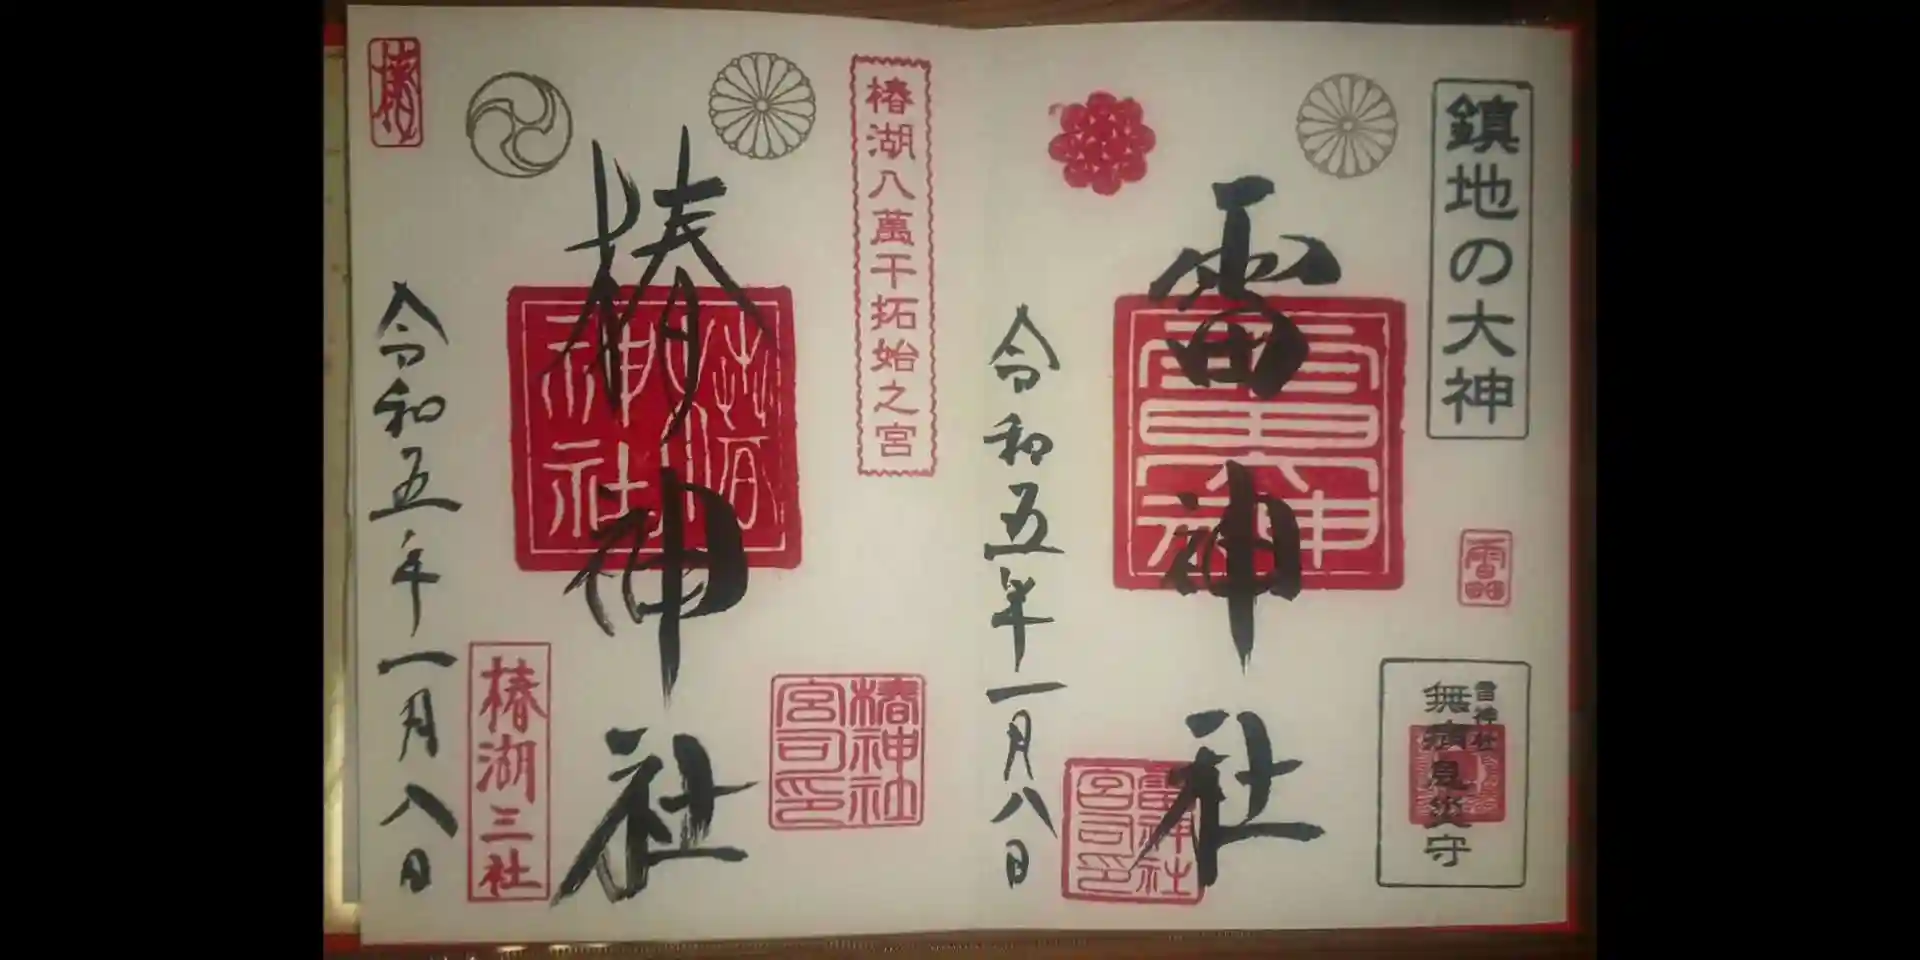 鎮地の大神
雷神社
雷神社
無病息災守
雷神社
宮司印
令和五年一月八日
椿湖八萬干拓始之宮
椿神社
椿神社
椿神社
宮司印
椿湖三社
令和五年一月八日
椿